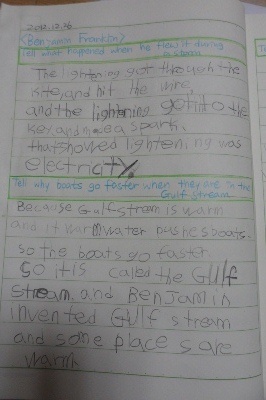 2012.12.26
<Benjamin Franklin>
Tell what happened when he flew it during
a storm
The lightening got through the
kite, and hit the wire
and the lightening got into the
key and made a spark.
that showed lightening was
electricity.
Tell why boats go faster when they are in the
Gulf Stream.
Because Gulf stream is warm
and it warm water pushes boats.
so the boats go faster
So it is called the Gulf
Stream, and Benjamin
invented Gulf stream
and some places are
warm